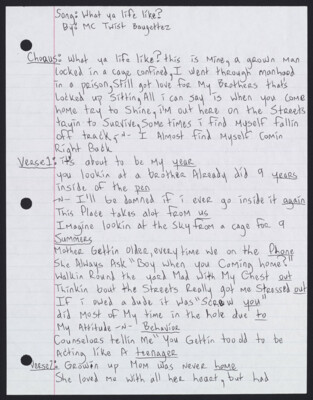 Song: What ya life like?
By: MC Twist Bougettez
Chorus: What ya life like? this is mine, a grown man
locked in a cage confined, I went through manhood
in a prison, Still got love for My Brothers thats
locked up Sitting, All i can say is when you come
home try to Shine, i'm out here on the Streets
tryin to Survive, Some times i find Myself fallin
off track, -N- I Almost find Myself Comin
Right Back
Verse 1: it's about to be My year
you lookin at a brother Already did 9 years
inside of the pen
-N- I'll be damned if i ever go inside it again
This Place takes alot from us
Imagine lookin at the Sky from a cage for 9
Summers
Mother Gettin Older, every time we on the Phone
She Always Ask "Boy when you Coming home?"
Walkin Round the yard Mad with My Chest out
Thinkin bout the Streets Really got me Stressed out
If i owed a dude it was "Screw you"
did Most of My time in the hole due to
My Attitude -N- Behavior
Counselors tellin Me "You Gettin too old to be
Acting like A teenager
Verse 2: Growin up Mom was never home
She loved me with all her heart, but had